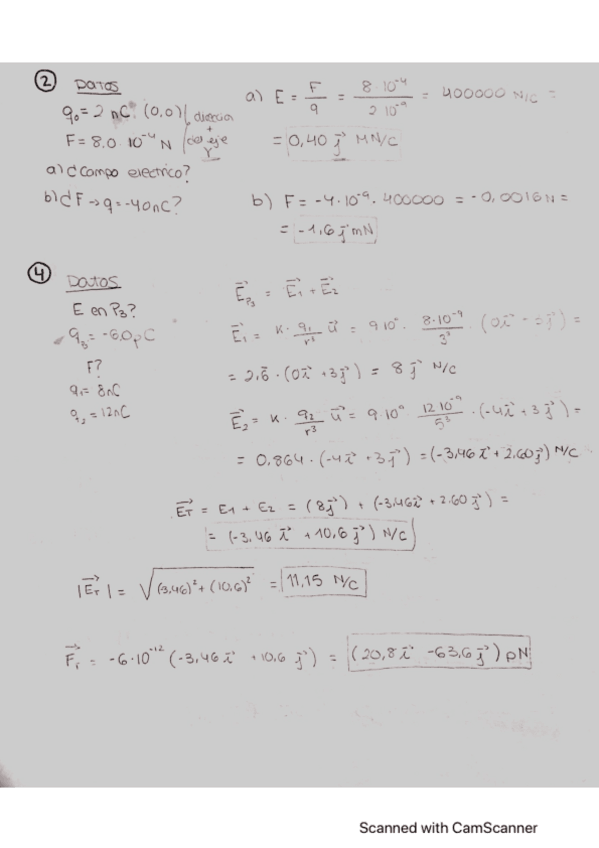 ② Datos
q₀ = 2 nC. (0,0) dirección
+
F = 8.0 · 10⁻⁴ N del eje
Y
a) ¿Campo electrico?
b) ¿F → q = -4.0 nC?
a) E = F/q = 8·10⁻⁴/2·10⁻⁹ = 400000 N/C =
= 0,40 j⃗ MN/C
b) F = -4·10⁻⁹ · 400000 = -0,0016 N =
= -1,6 j⃗ mN
④ Datos
E en P₃?
q₃ = -6.0 pC
F?
q₁ = 8nC
q₂ = 12nC
E⃗p₃ = E⃗₁ + E⃗₂
E⃗₁ = K · q₁/r³ u⃗ = 9·10⁹ · 8·10⁻⁹/3³ · (0i⃗ j⃗) =
= 2,6̂ · (0i⃗ + 3j⃗) = 8 j⃗ N/C
E⃗₂ = K · q₂/r³ u⃗ = 9·10⁹ · 12·10⁻⁹/5³ · (-4i⃗ + 3j⃗) =
= 0,864 · (-4i⃗ + 3j⃗) = (-3,46i⃗ + 2.60j⃗) N/C
E⃗T = E1 + E2 = (8j⃗) + (-3,46i⃗ + 2,60j⃗) =
= (-3,46 i⃗ + 10,6 j⃗) N/C
|E⃗T| = √(3,46)² + (10,6)² = 11,15 N/C
F⃗r = -6·10⁻¹² (-3,46i⃗ + 10,6 j⃗) = (20,8i⃗ - 63,6j⃗) pN
Scanned with CamScanner